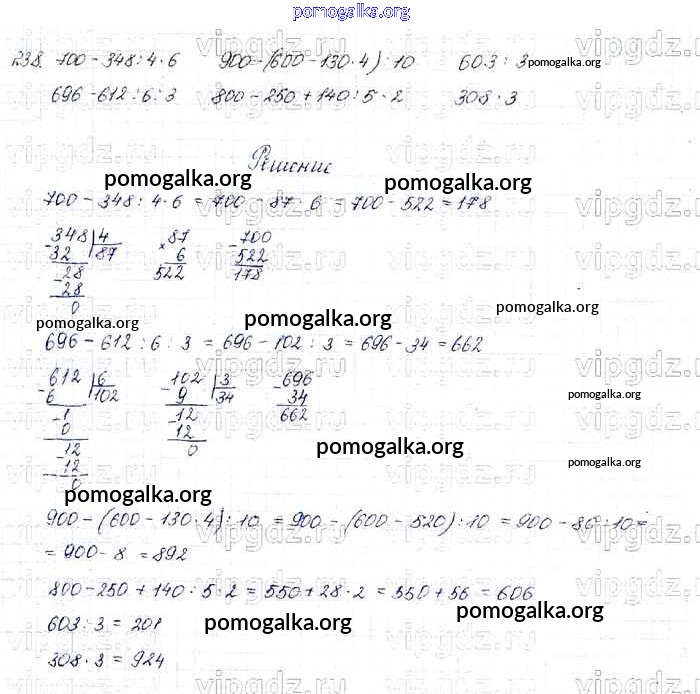 pomogalka.org
238. 700-348:4·6 900-(600-130·4):10 603:3 pomogalka.org
696-612:6:3 800-250+140:5·2 308·3
Решение
pomogalka.org pomogalka.org
700-348:4·6=700-87·6=700-522=178
348 4 87 700
32 87 6 522
28 522 178
28
0
pomogalka.org pomogalka.org pomogalka.org
696-612:6:3=696-102:3=696-34=662
612 6 102 3 696
6 102 9 34 34
1 12 662
0 12
12 0
12
0
pomogalka.org
pomogalka.org
pomogalka.org
pomogalka.org
900-(600-130·4):10=900-(600-520):10=900-80:10=
=900-8=892
800-250+140:5·2=550+28·2=550+56=606
603:3=201
pomogalka.org pomogalka.org
308·3=924
vipgdz.ru